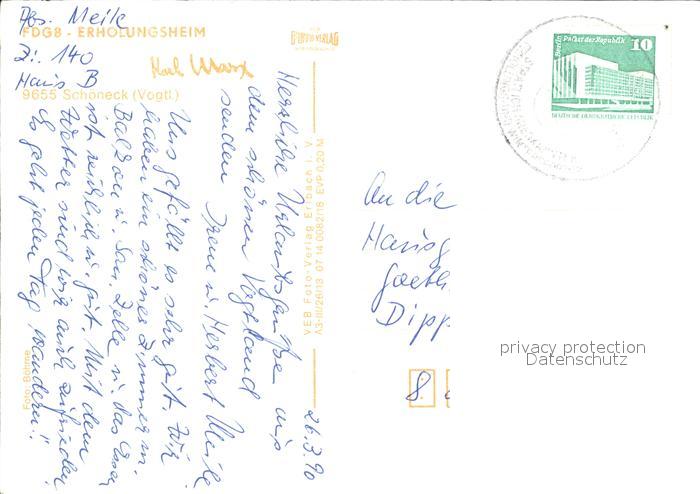 Abs. Meile
Zi. 140
Haus B
FDGB - ERHOLUNGSHEIM
Karl Marx
9655 Schöneck (Vogtl.)
Herzliche Urlaubsgrüße aus
dem schönen Vogtland
senden Irene u. Herbert Meile
Uns gefällt es sehr gut. Wir
haben ein schönes Zimmer m.
Balkon u. San. Zelle u. das Essen
ist reichlich u. gut. Mit dem
Wetter sind wir auch zufrieden
Es geht jeden Tag wandern!!
26.3.90
Foto: Böhme
VEB Foto-Verlag Erlbach i. V.
A3-III/26/13 07 14 0082/18 EVP 0,20 M
Berlin, Palast der Republik
10
DEUTSCHE DEMOKRATISCHE REPUBLIK
An die
Hausg
Goeth
Dipp
8
privacy protection
Datenschutz